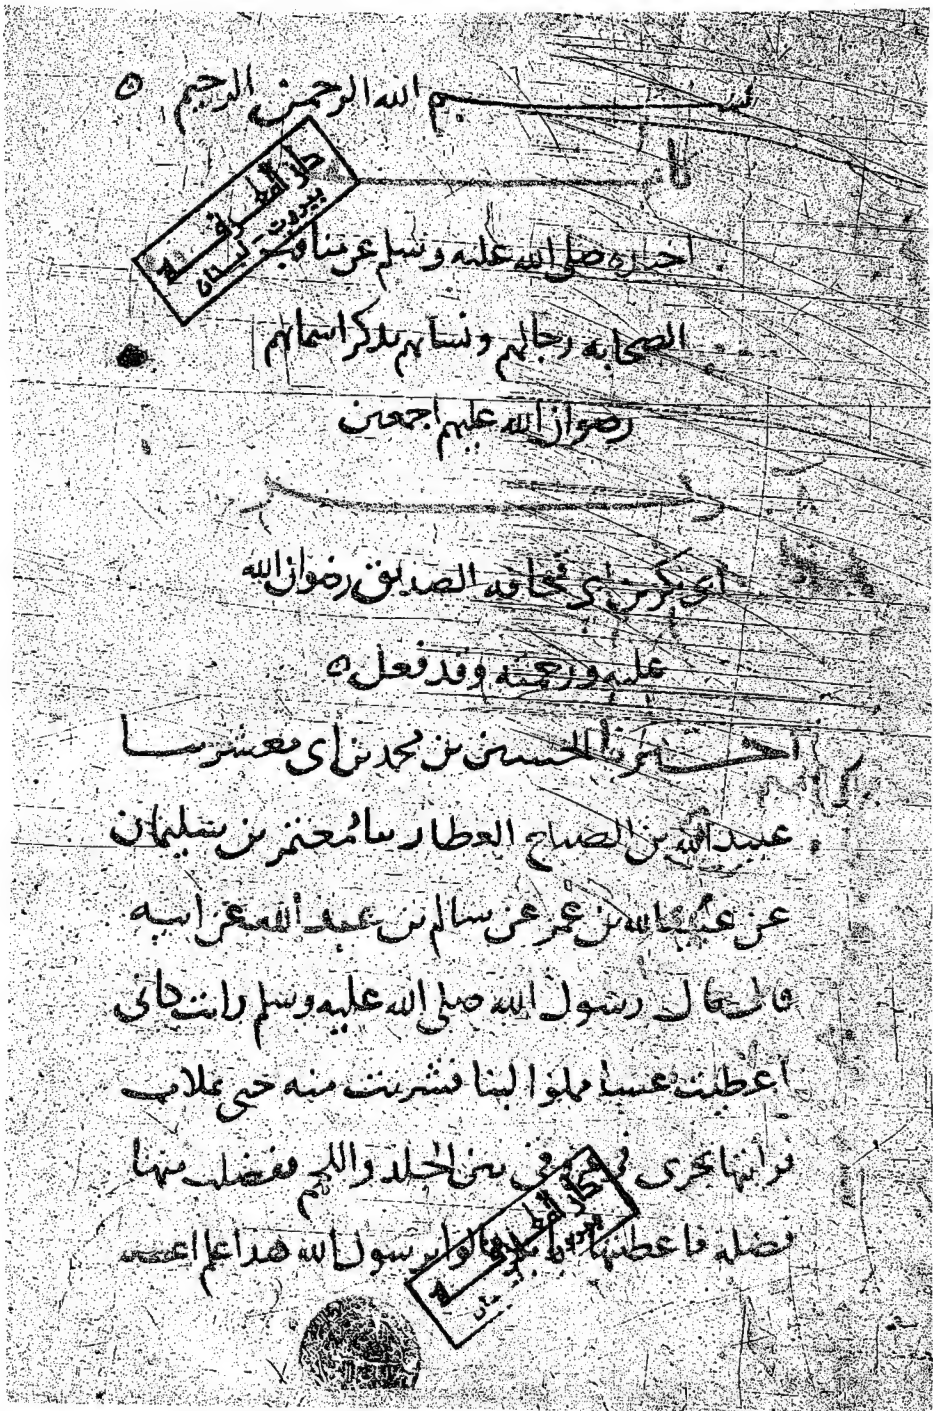 بسم الله الرحمن الرحيم ه
اخباره صلى الله عليه وسلم عن مناقب
الصحابه رجالهم ونسائهم بذكر اسمائهم
رضوان الله عليهم اجمعين
ابي بكر بن ابي قحافه الصديق رضوان الله
عليه ورحمته وقد فعل ه
اخبرنا الحسين بن محمد بن ابي معشر ثنا
عبيد الله بن الصباح العطار ثنا معتمر بن سليمان
عن عبيد الله بن عمر عن سالم بن عبد الله عن ابيه
قال قال رسول الله صلى الله عليه وسلم رايت كاني
اعطيت عسا مملوا لبنا فشربت منه حتى تملات
فرايتها تجري في عروقي بين الجلد واللحم ففضلت منها
فضله فاعطيتها ابا بكر قالوا يرسول الله هذا علم اعطـ
دار المعرفة
بيروت - لبنان
دار المعرفة